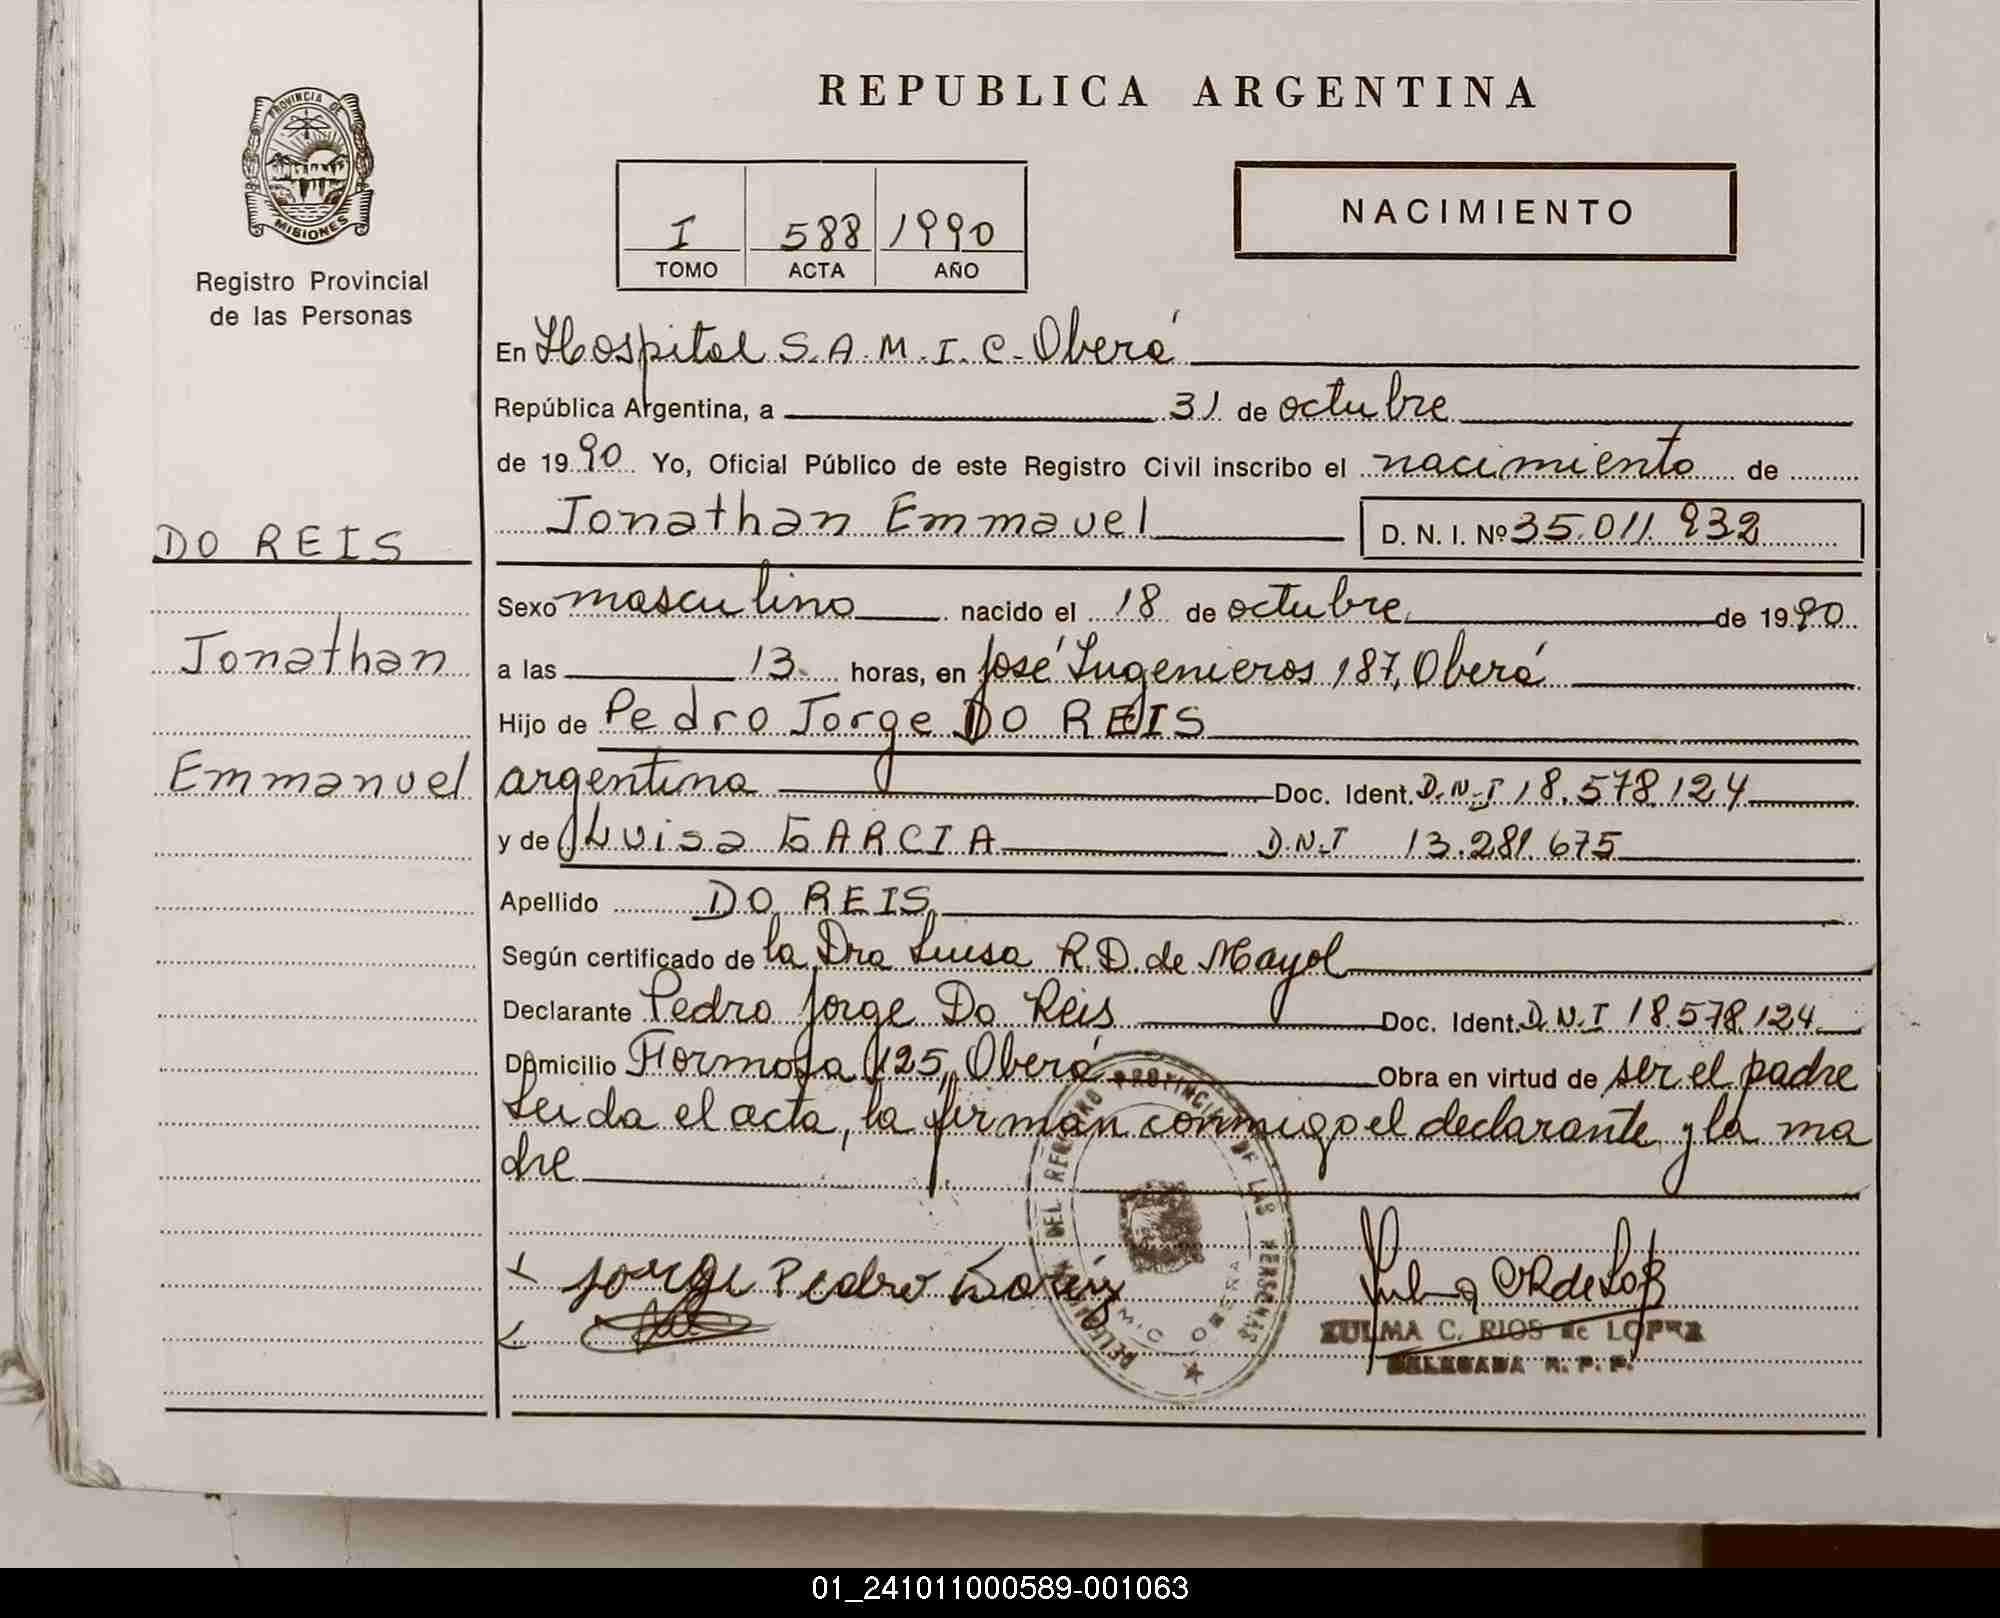 REPUBLICA ARGENTINA
PROVINCIA DE
MISIONES
Registro Provincial
de las Personas
I 588 1990
TOMO ACTA AÑO
NACIMIENTO
En Hospital S.A.M.I.C-Oberá
República Argentina, a 31 de octubre
de 1990 Yo, Oficial Público de este Registro Civil inscribo el nacimiento de
Jonathan Emmauel D. N. I. Nº 35.011.932
DO REIS
Jonathan
Emmanuel
Sexo masculino nacido el 18 de octubre de 1990
a las 13 horas, en José Ingenieros 187, Oberá
Hijo de Pedro Jorge DO REIS
argentino Doc. Ident. D.N.I 18.578.124
y de Luisa GARCIA D.N.I 13.281.675
Apellido DO REIS
Según certificado de la Dra Luisa R.D. de Mayol
Declarante Pedro Jorge Do Reis Doc. Ident. D.N.I 18.578.124
Domicilio Formosa 125, Oberá Obra en virtud de ser el padre
Leida el acta, la firman conmigo el declarante y la ma
dre
Jorge Pedro Doreiz
ZULMA C. RIOS de LOPEZ
DELEGADA R. P. P.
01_241011000589-001063